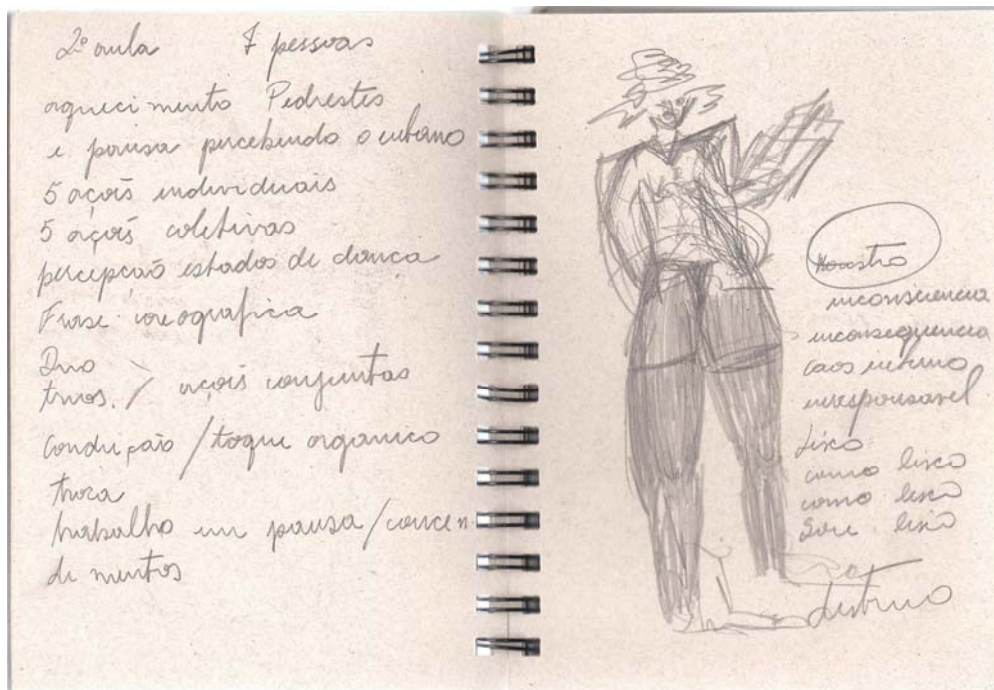 2º aula 7 pessoas
aquecimento Pedestres
e pausa percebendo o urbano
5 ações individuais
5 ações coletivas
percepção estados de dança
Frase coreografica
Duo
trios. / ações conjuntas
Condução / toque organico
troca
trabalho em pausa / concen
di mentos
Monstro
inconsciencia
inconsequencia
caos interno
irresponsavel
Lixo
como lixo
como lixo
Sou lixo
destruo